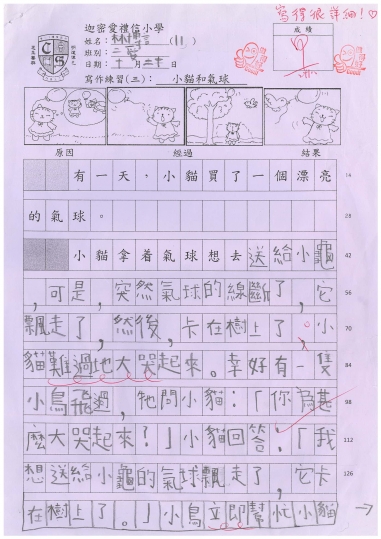 寫得很詳細！
迦密愛禮信小學
成績
姓名：林博言 (11)
班別：二
日期：十月二十日
寫作練習(三)：小貓和氣球
原因 經過 結果
有一天，小貓買了一個漂亮 14
的氣球。 28
小貓拿着氣球想去送給小龜 42
，可是，突然氣球的線斷了，它 56
飄走了，然後，卡在樹上了。小 70
貓難過地大哭起來。幸好有一隻 84
小鳥飛過，牠問小貓：「你為甚 98
麼大哭起來？」小貓回答：「我 112
想送給小龜的氣球飄走了，它卡 126
在樹上了。」小鳥立即幫忙小貓